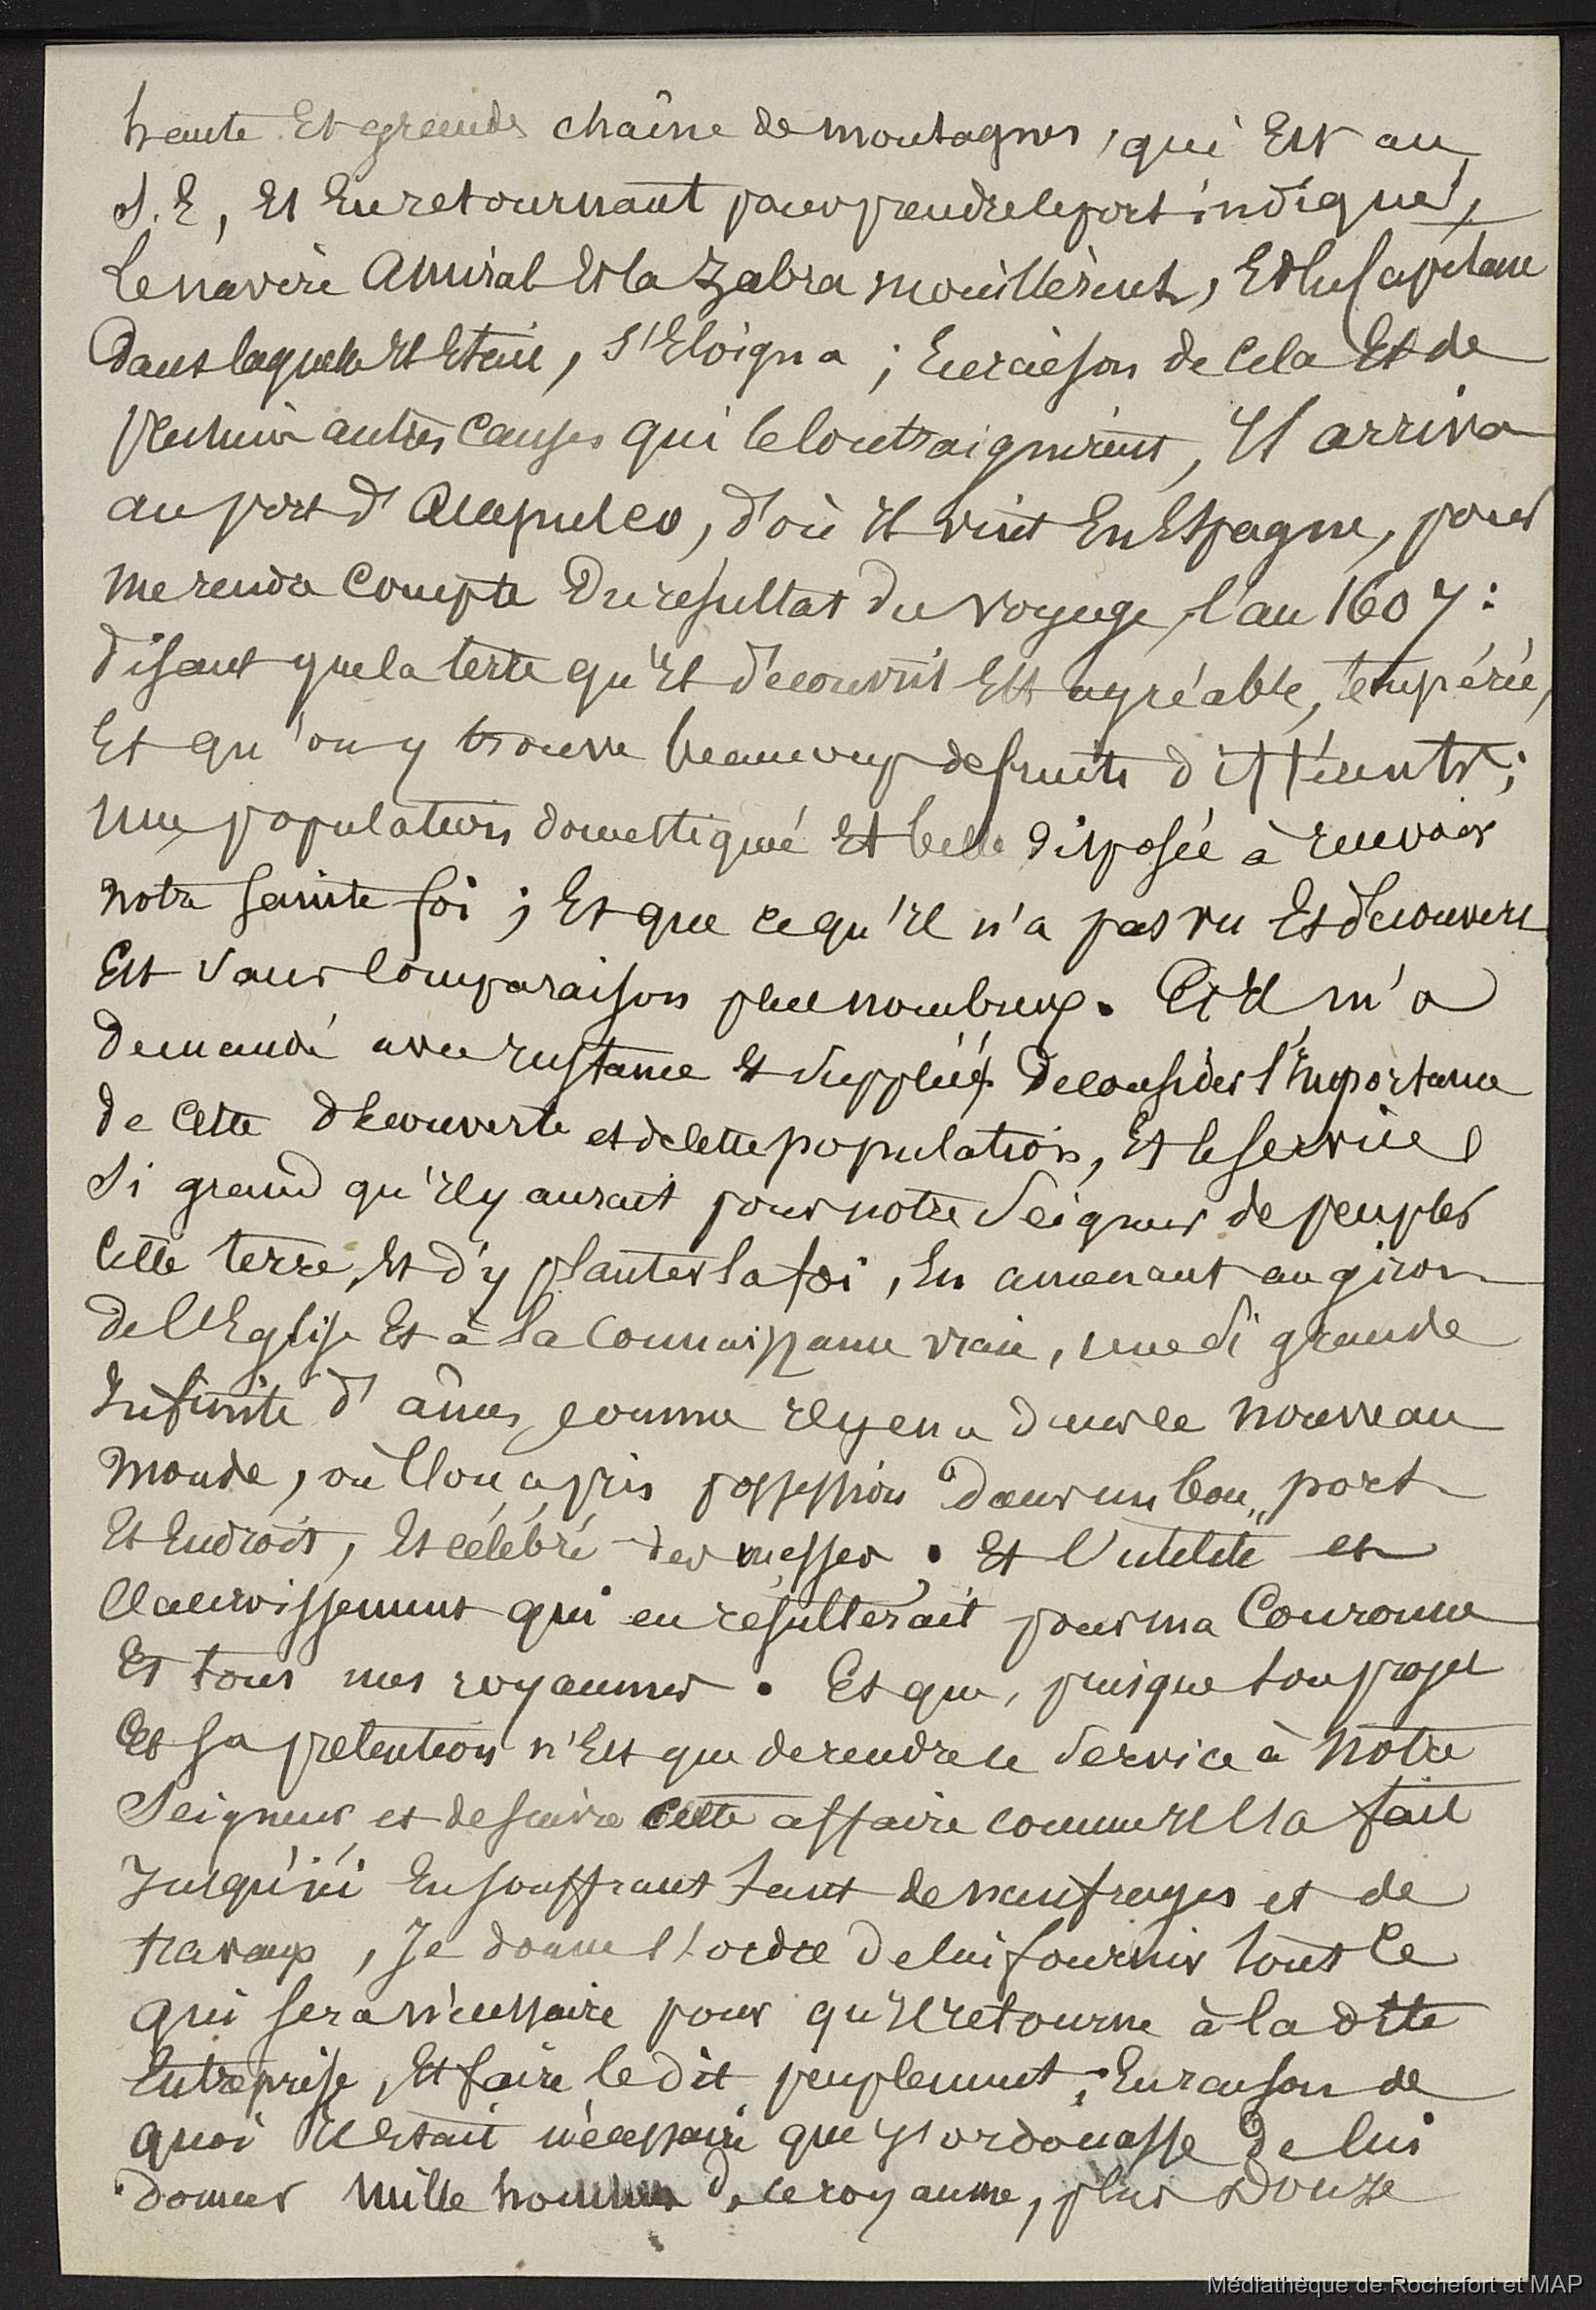 haute Et grande chaîne de montagnes, qui Est au
S. E, Et En retournant pour prendre le port indiqué,
Le navire Amiral Et la Zabra mouillèrent, Et la Capitane
Dans laquelle Il Etait, s'Eloigna ; En raison de Cela Et de
plusieurs autres Causes qui le Contraignirent, Il arriva
au port d'Acapulco, d'où Il vint En Espagne, pour
me rendre Compte Du resultat du voyage, l'an 1607 :
disant que la terre qu'Il découvrit Est agréable, tempérée,
Et qu'on y trouve beaucoup de fruits différents ;
une population domestiquée Et belle disposée à recevoir
notre Sainte foi ; Et que ce qu'Il n'a pas vu Et découvert
Est Sans Comparaison plus nombreux. Et Il m'a
Demandé avec Instance Et Supplié De considérer l'Importance
de Cette découverte et de Cette population, Et le service
Si grand qu'Il y aurait pour notre Seigneur de peupler
Cette terre, Et d'y planter la foi, En amenant au giron
de l'Eglise Et à la Connaissance vraie, une Si grande
Infinité d'âmes comme Il y en a dans le nouveau
Monde, où l'on a pris possession dans un bon port
Et Endroit, Et célébré des messes. Et l'utilité et
l'accroissement qui en résulterait pour ma Couronne
Et tous mes royaumes. Et que, puisque son projet
Et Sa prétention n'Est que de rendre ce Service à Notre
Seigneur et de suivre Cette affaire comme Il l'a fait
Jusqu'ici En souffrant tant de naufrages et de
travaux, Je donne l'ordre De lui fournir tout Ce
qui sera nécessaire pour qu'Il retourne à la dite
Entreprise, Et faire le dit peuplement ; En raison de
quoi Il Etait nécessaire que J'ordonasse De lui
donner Mille hommes de ce royaume, plus Douze
Médiathèque de Rochefort et MAP